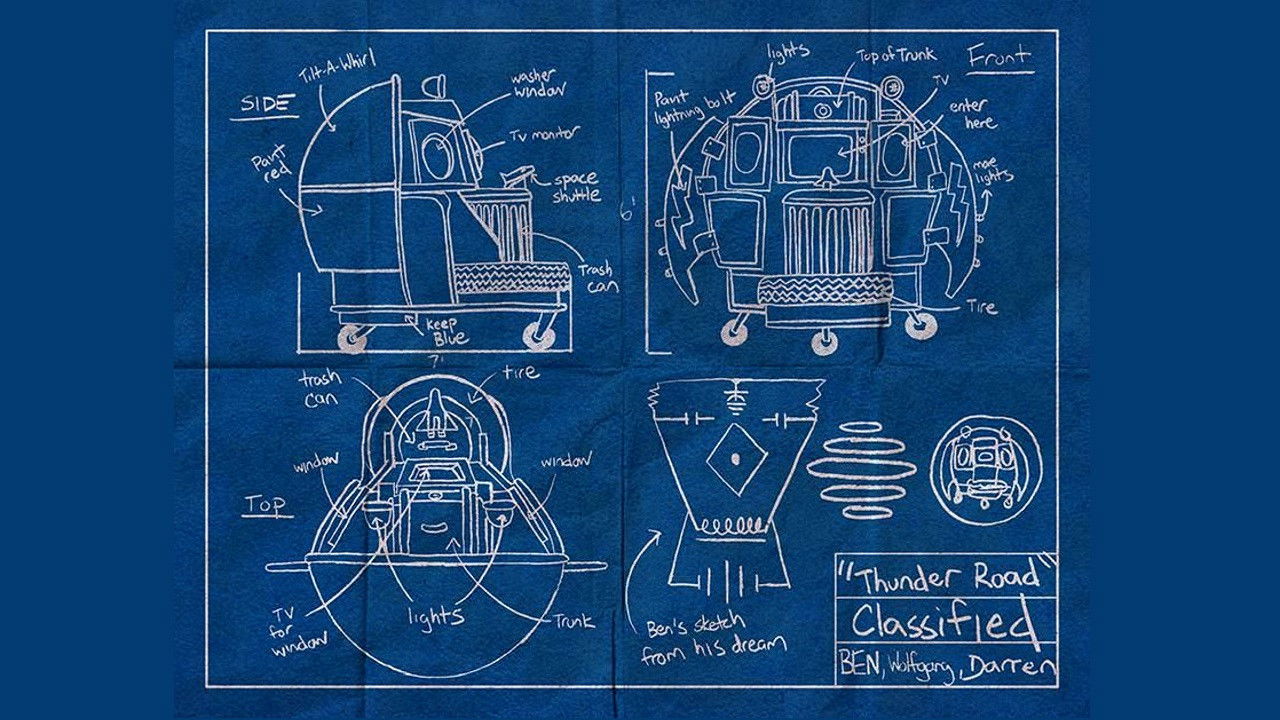 SIDE
Tilt-A-Whirl
washer
window
TV monitor
Paint
red
space
shuttle
Trash
can
Keep
Blue
7'
lights
Top of Trunk
Front
TV
Paint
lightning bolt
enter
here
more
lights
6'
Tire
Top
trash
can
tire
window
window
TV
for
window
lights
Trunk
Ben's sketch
from his dream
"Thunder Road"
Classified
BEN, Wolfgang, Darren